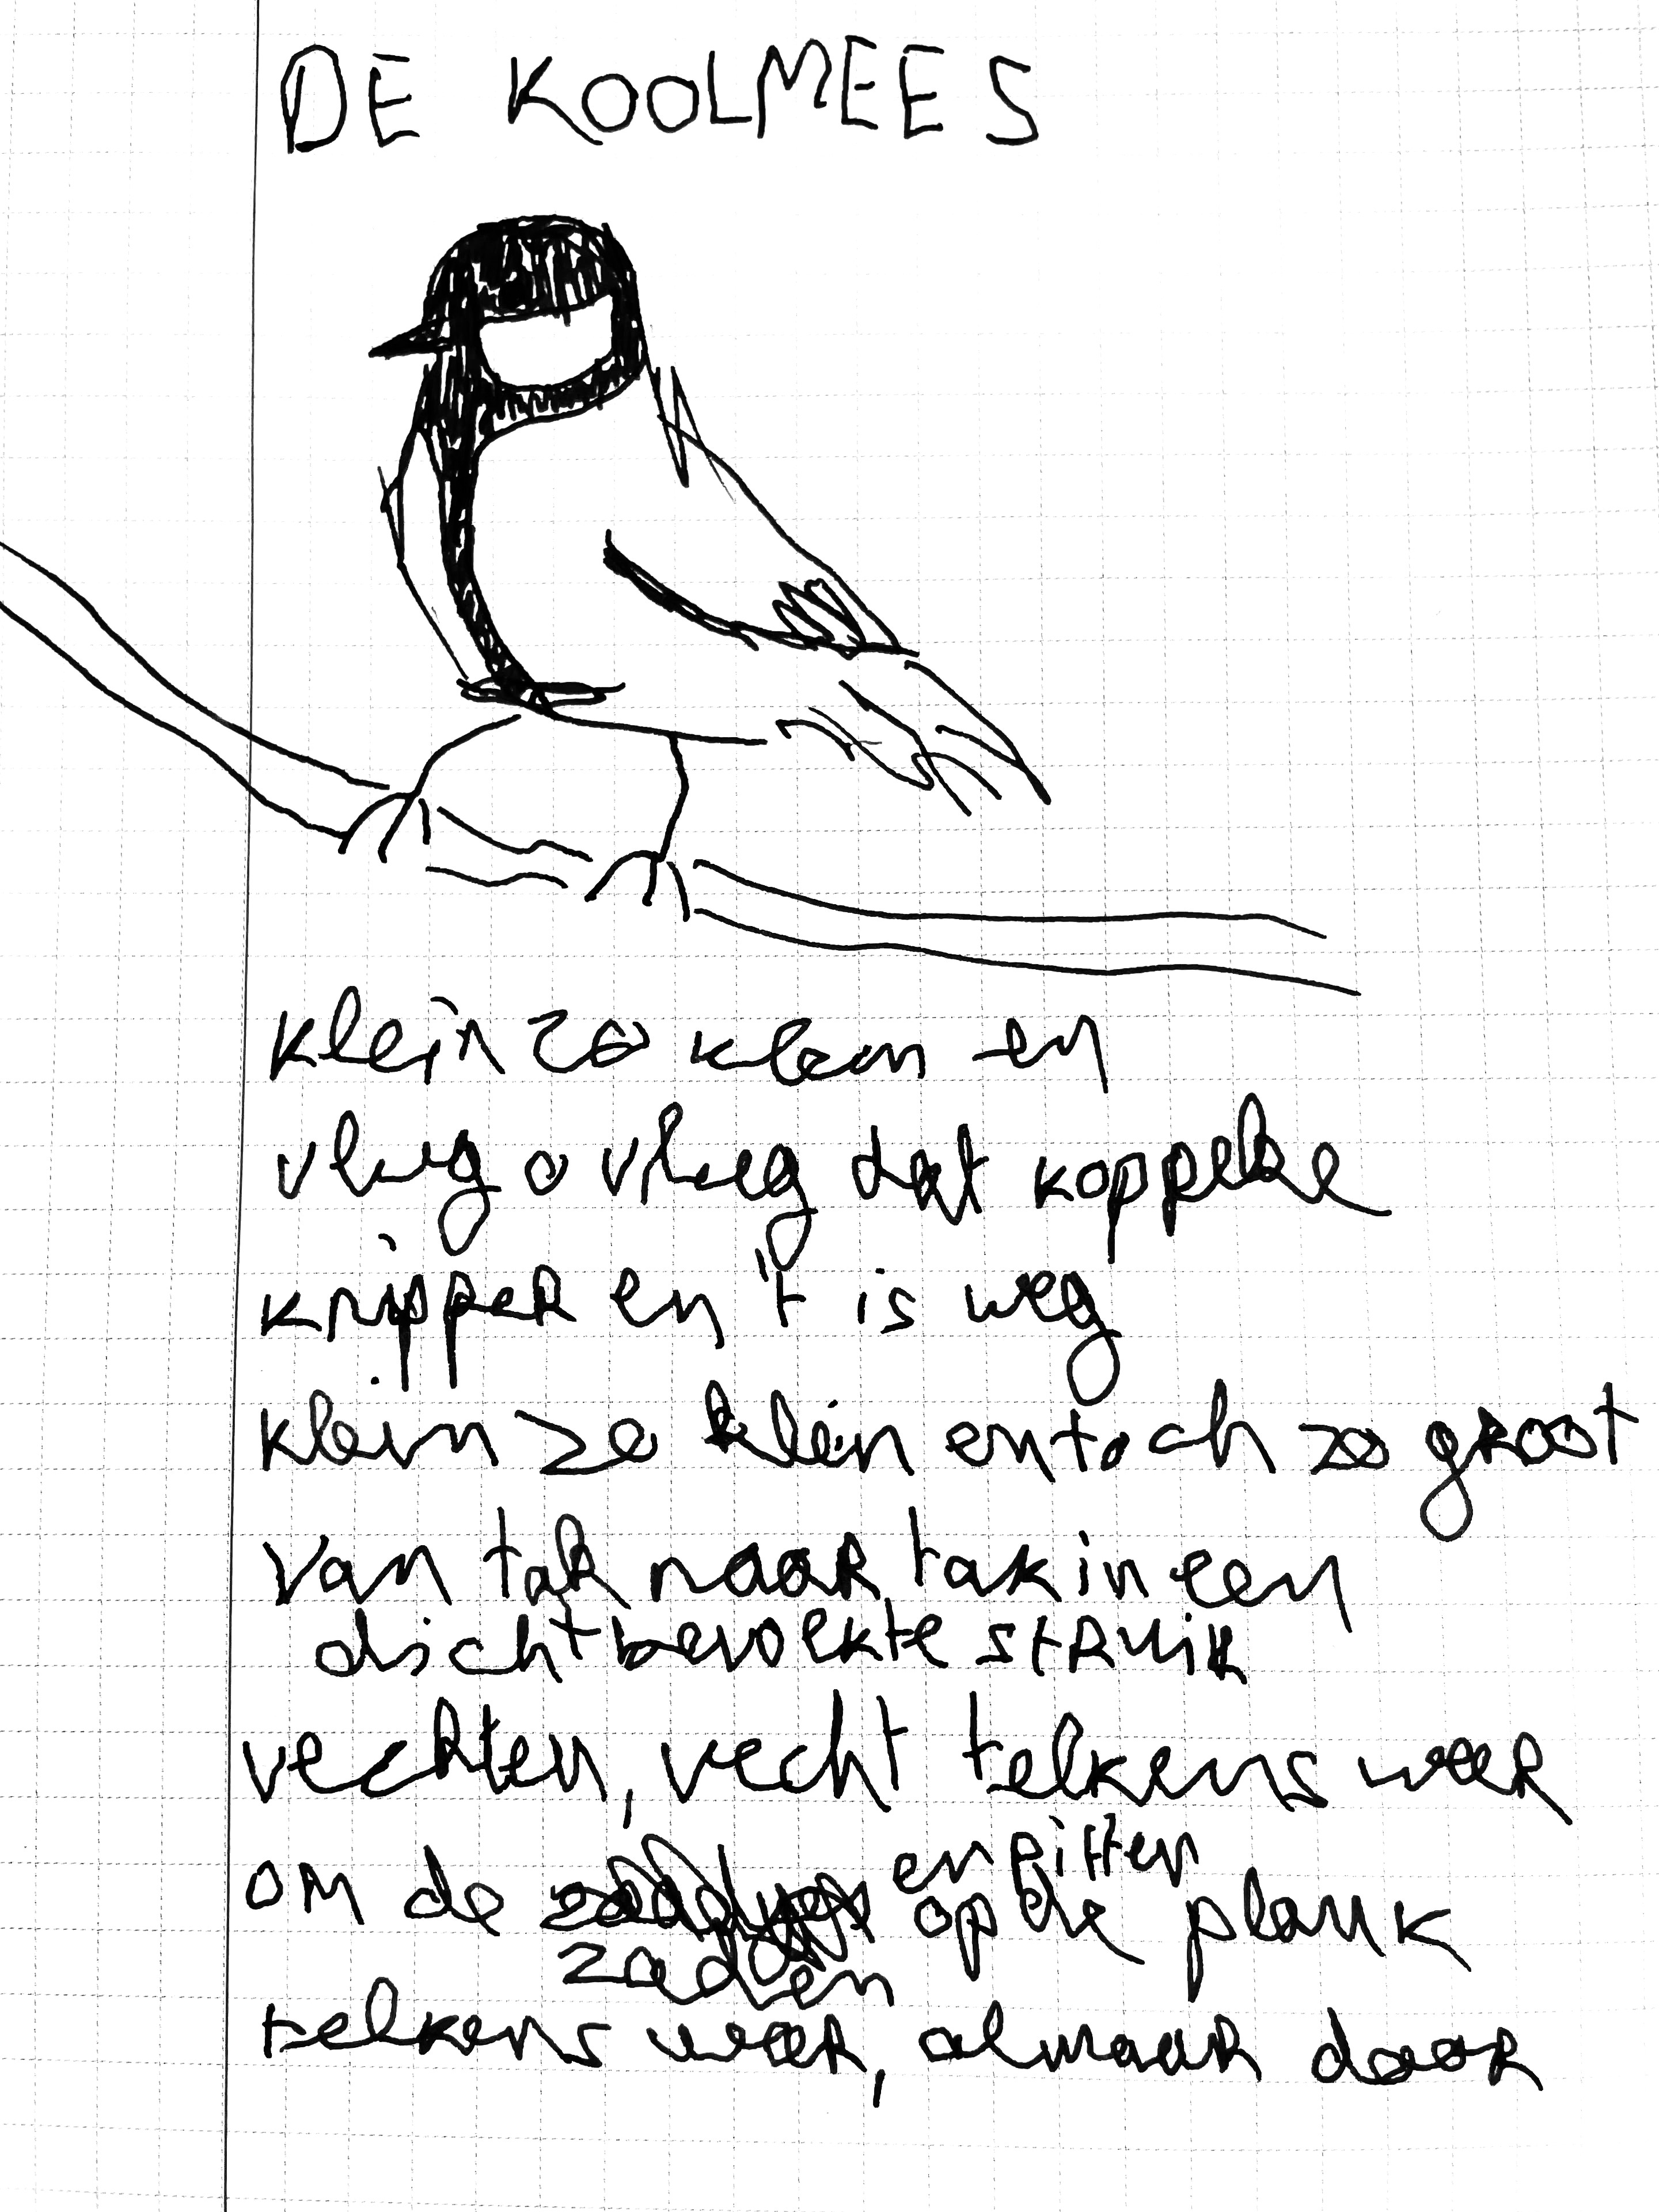 DE KOOLMEES
klein zo klein en
vlug o vlug dat koppeke
knipper en 't is weg
klein zo klein en toch zo groot
van tak naar tak in een
dichtbevolkte struik
vechten, vecht telkens weer
om de zaden en pitten op de plank
telkens weer, almaar door